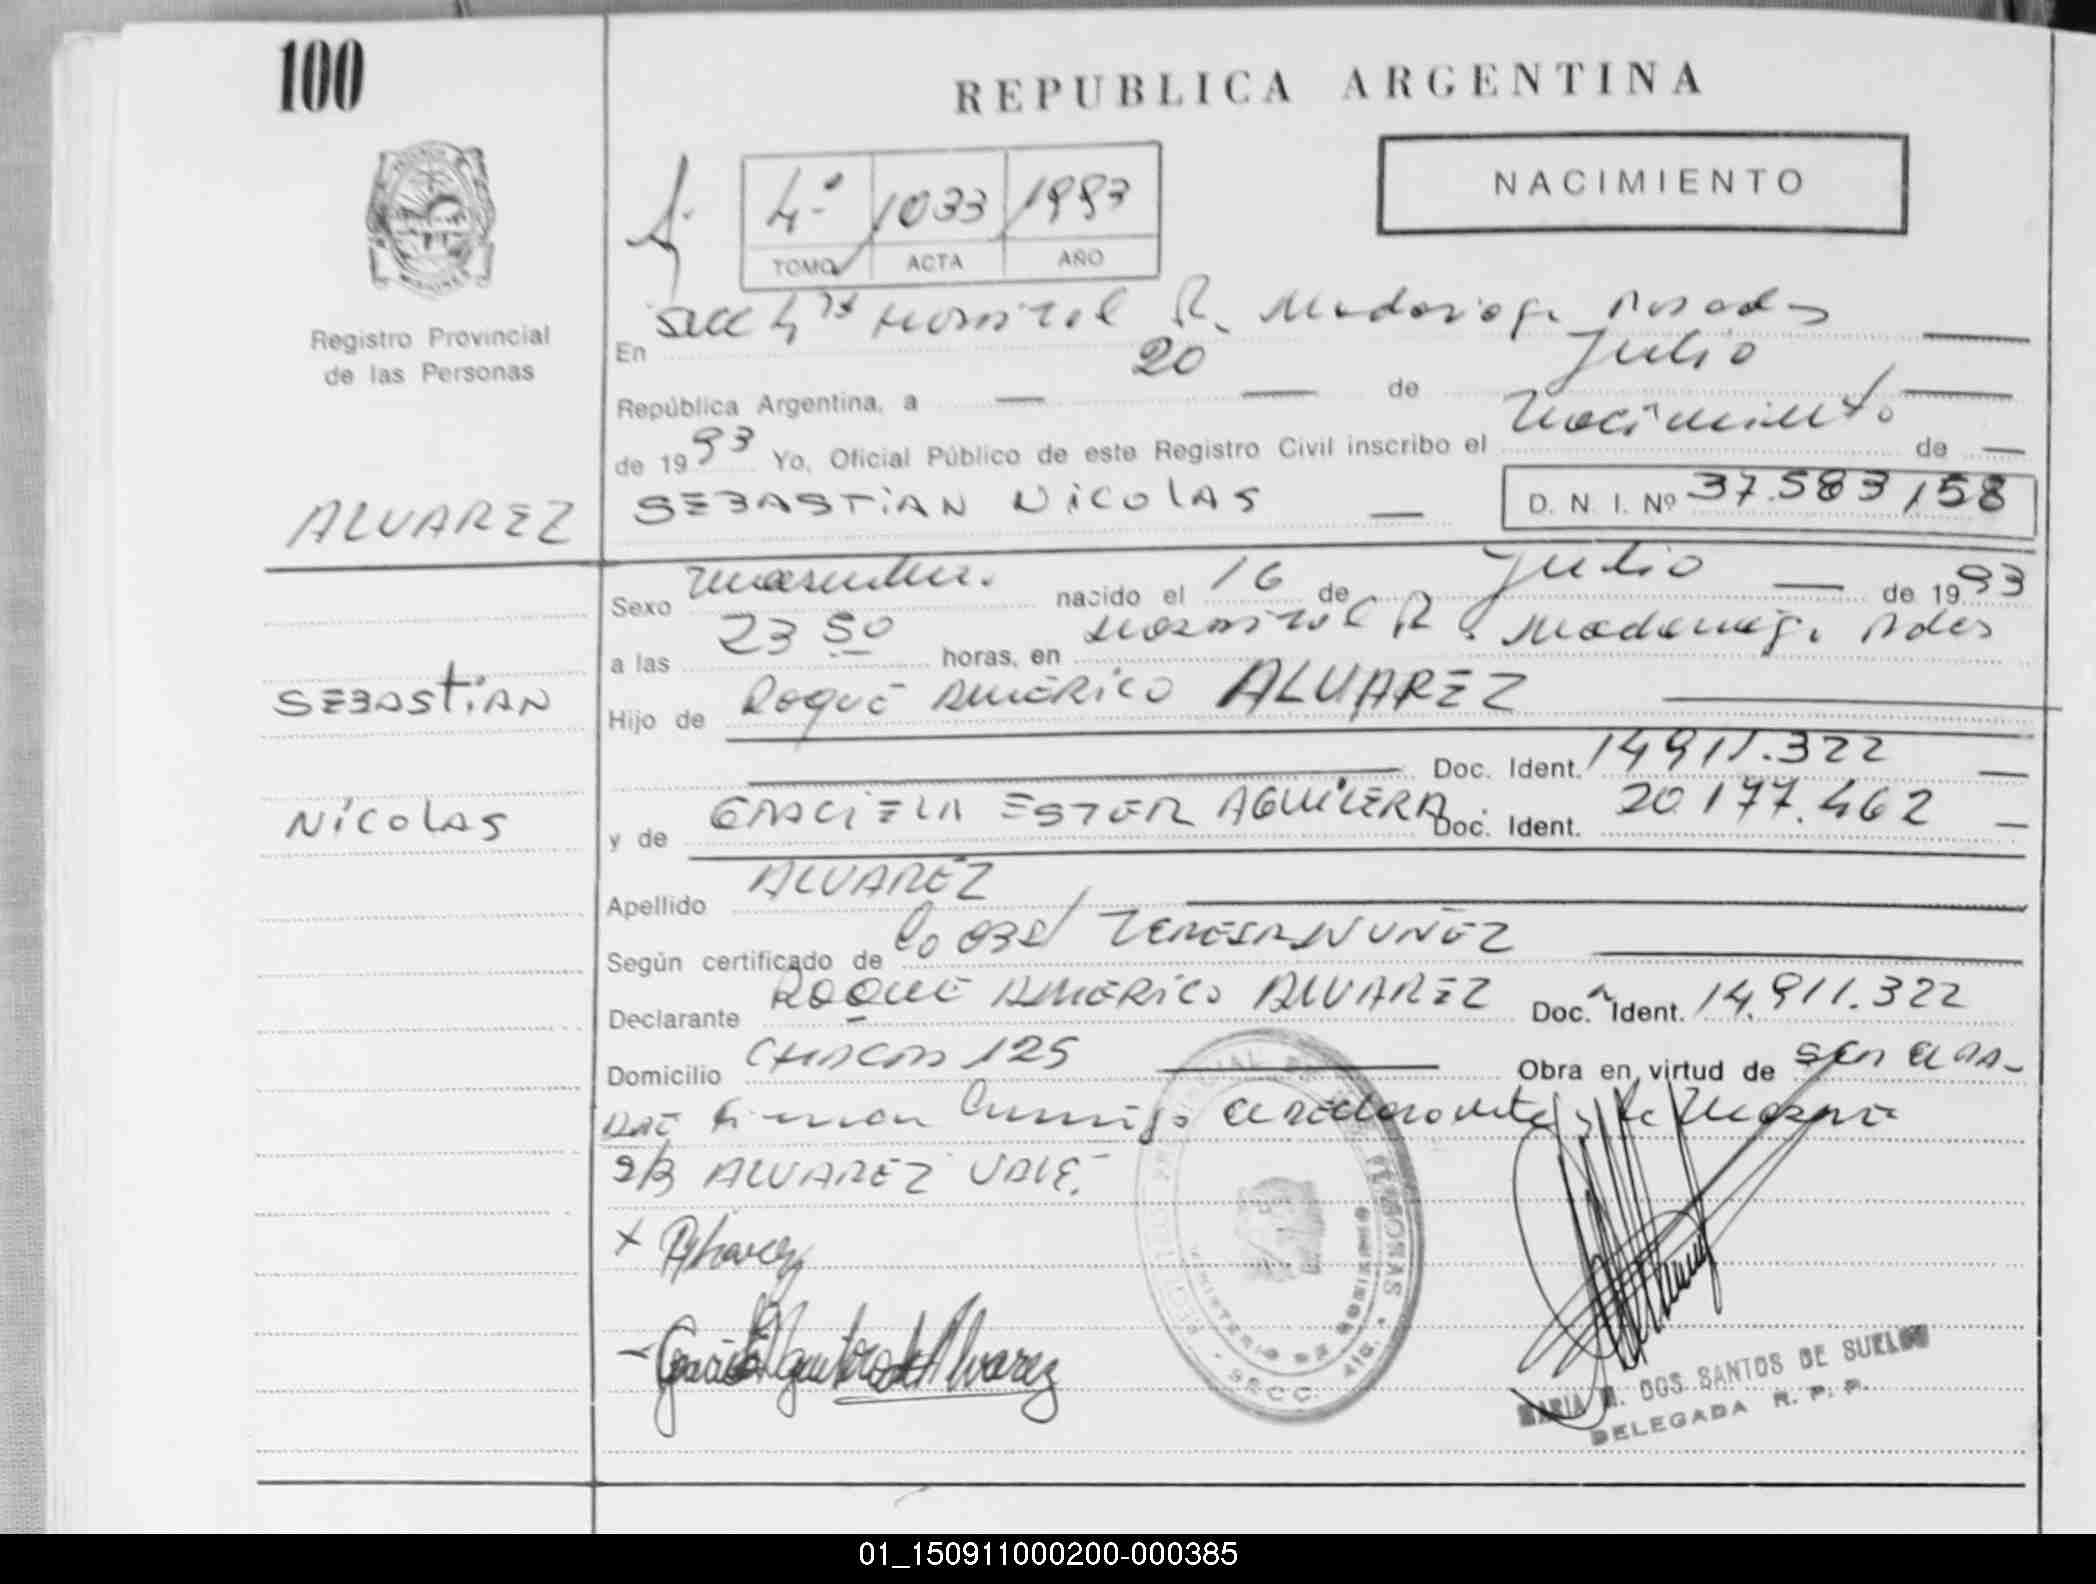 100
REPUBLICA ARGENTINA
NACIMIENTO
4º 1033 1993
TOMO ACTA AÑO
Registro Provincial
de las Personas
En Secc 4ta Hospital R. Madariaga Posadas
República Argentina, a 20 de Julio
de 1993 Yo, Oficial Público de este Registro Civil inscribo el Nacimiento de
ALVAREZ
SEBASTIAN NICOLAS
D. N. I. Nº 37.583.158
Sexo masculino. nacido el 16 de Julio de 1993
a las 23 50 horas, en Hospital R. Madariaga Pdas
SEBASTIAN
Hijo de ROQUE AMERICO ALVAREZ
Doc. Ident. 14.911.322
NICOLAS
y de GRACIELA ESTER AGUILERA Doc. Ident. 20.177.462
Apellido ALVAREZ
Según certificado de TERESA NUÑEZ
Declarante ROQUE AMERICO ALVAREZ Doc. Ident. 14.911.322
Domicilio CHACO 125 Obra en virtud de ser el PA-
DRE Firman Conmigo el declarante y la Madre
S/B ALVAREZ VALE.
x RAlvarez
- Graciela Aguilera de Alvarez
REGISTRO PROVINCIAL DE LAS PERSONAS
MINISTERIO DE GOBIERNO
SECC. 4ta.
MARIA M. DOS SANTOS DE SUELDO
DELEGADA R. P. P.
01_150911000200-000385